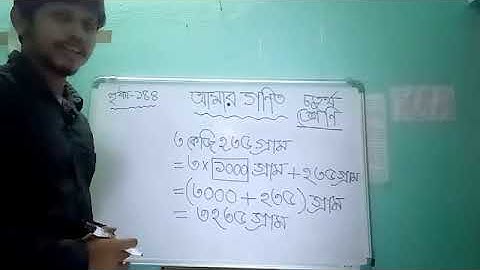 পৃষ্ঠা-১৪৪
আমার গণিত
চতুর্থ শ্রেণি
৩ কেজি ২৩৫ গ্রাম
=৩×১০০০ গ্রাম+২৩৫ গ্রাম
=(৩০০০+২৩৫) গ্রাম
= ৩২৩৫ গ্রাম